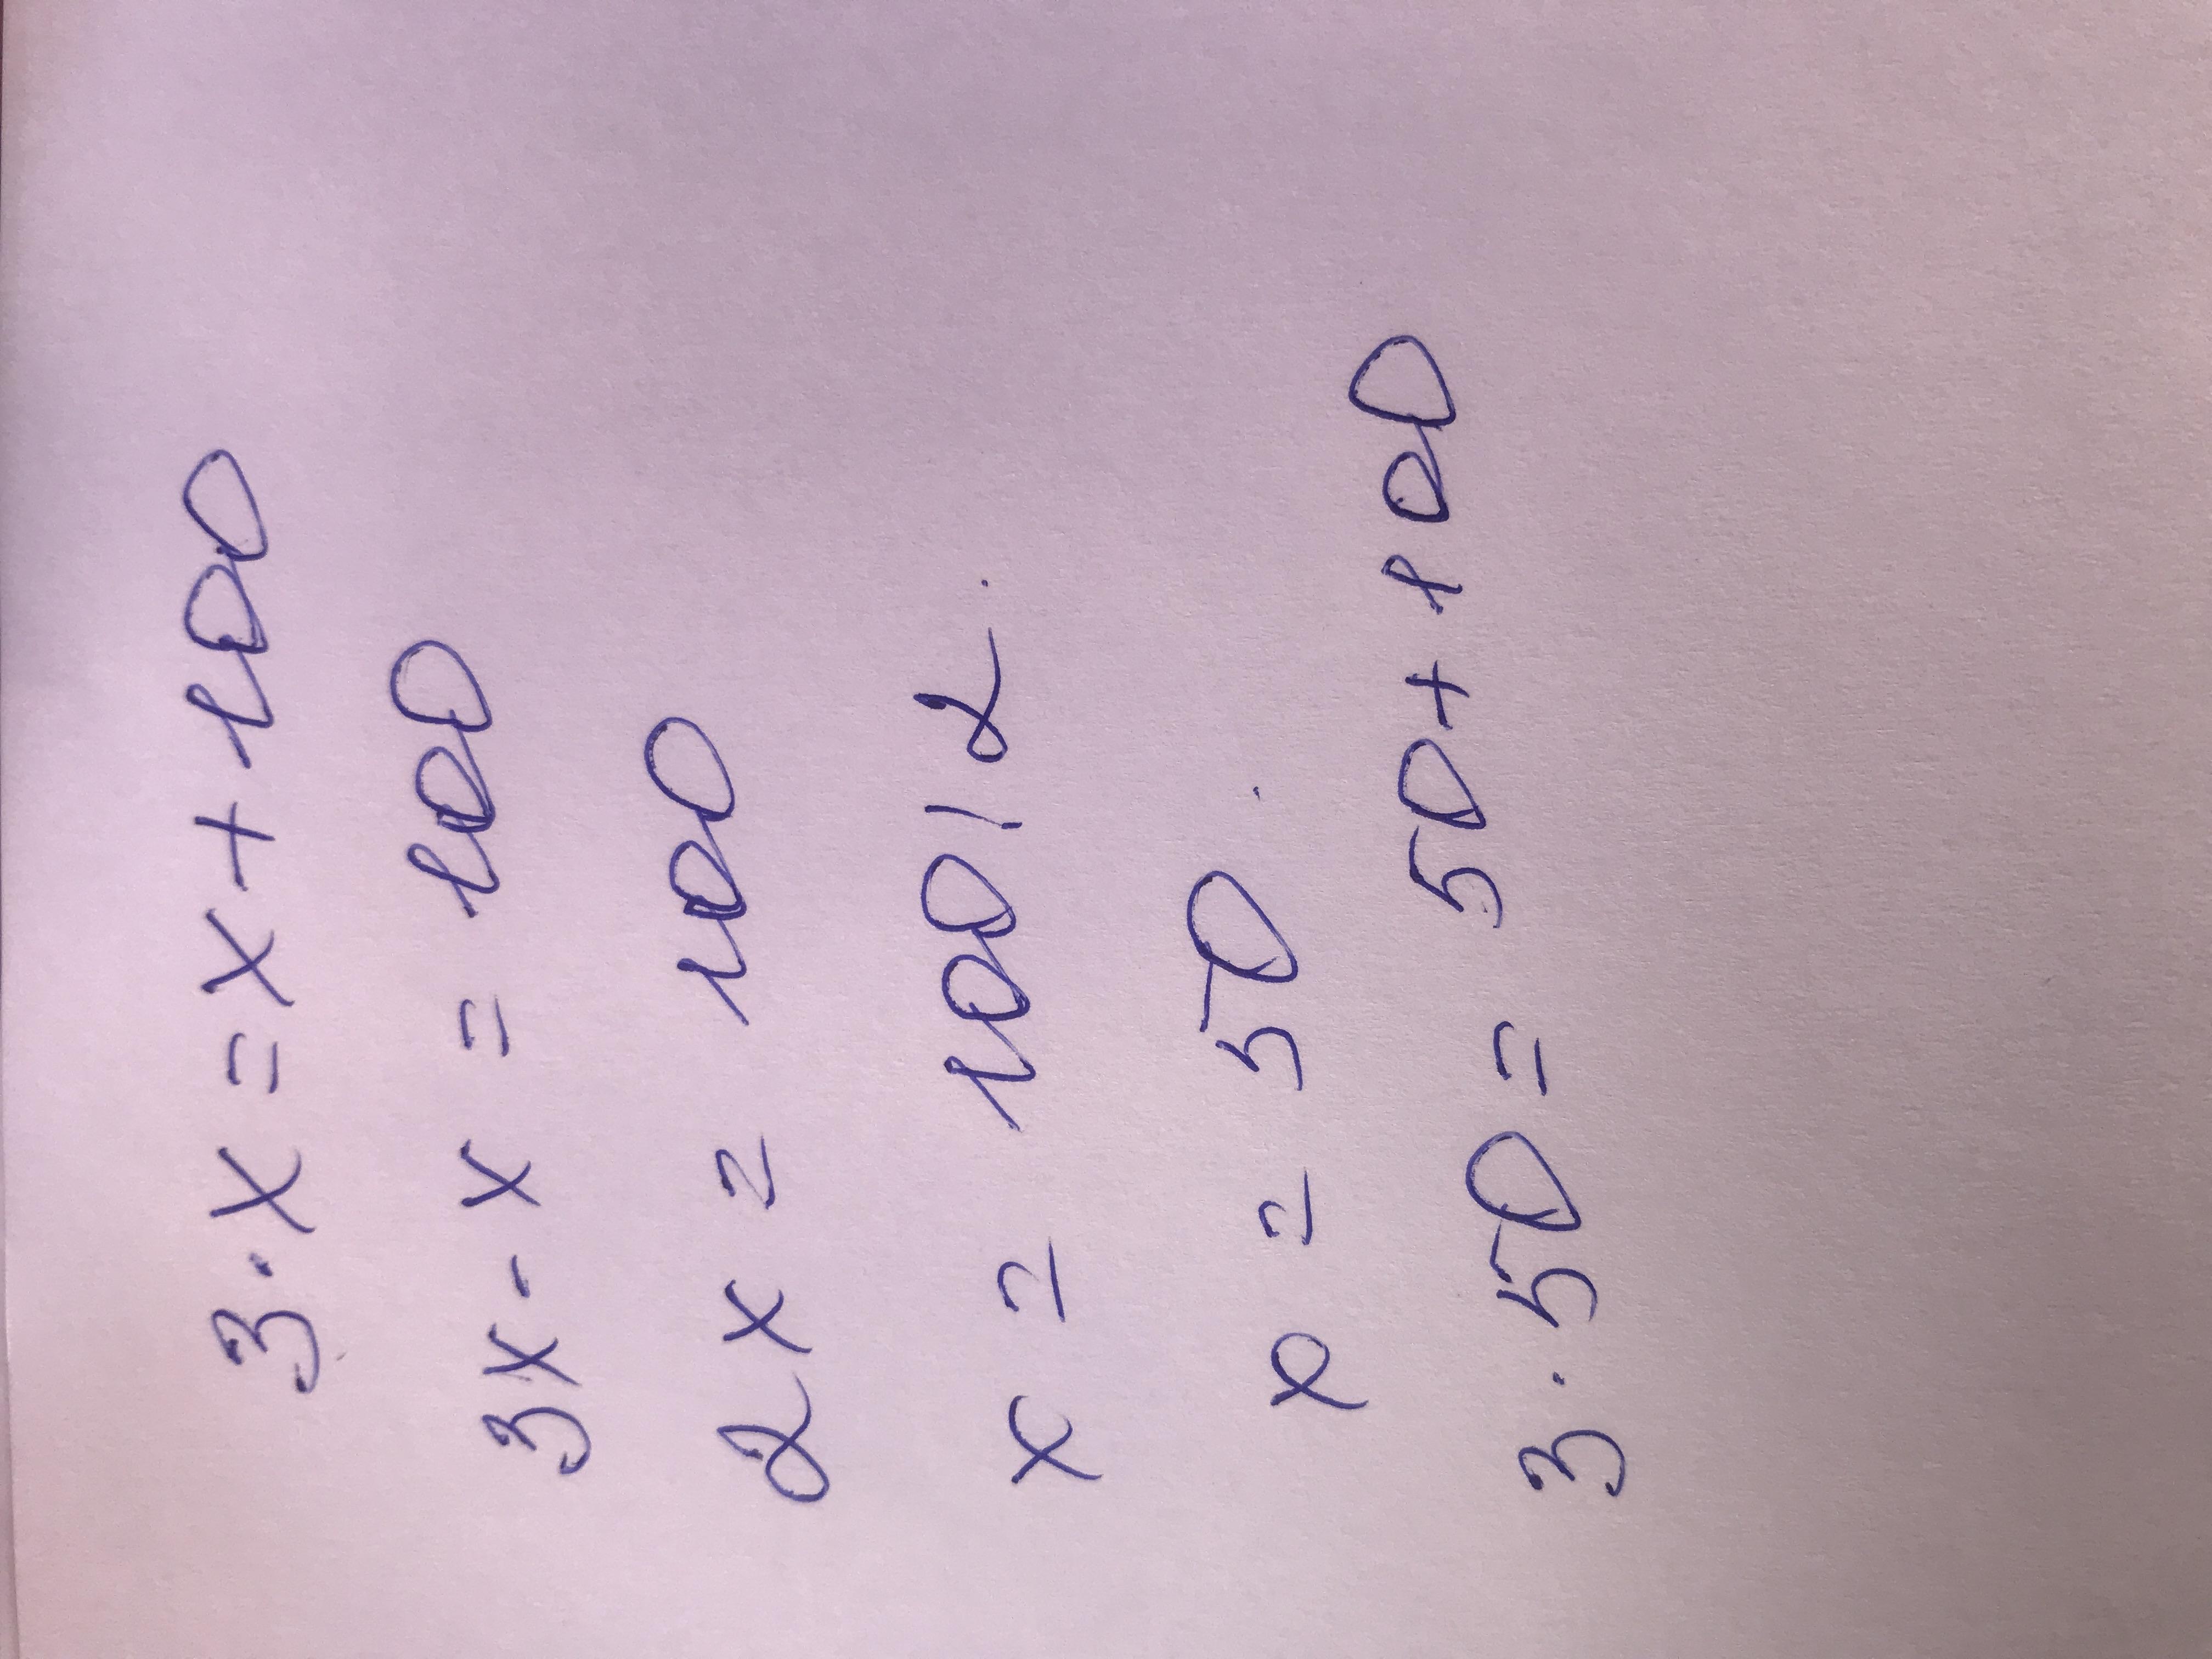 3·x=x+100
3x-x=100
2x=100
x=100/2
x=50
3·50=50+100